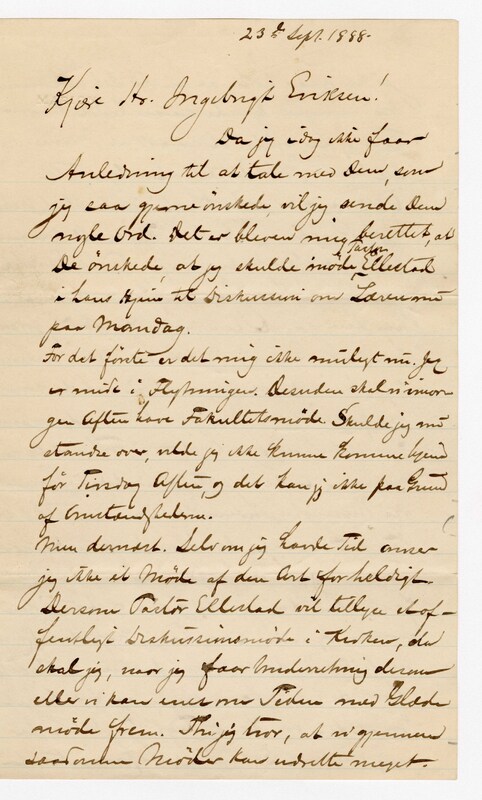 23de Sept. 1888.
Kjære Hr. Ingebrigt Eriksen!
Da jeg idag ikke faar
Anledning til at tale med Dem, som
jeg saa gjerne önskede, vil jeg sende Dem
nogle Ord. Det er bleven mig berettet, at
De önskede, at jeg skulde möde Pastor Ellestad
i hans Hjem til Diskussion om Læren nu
paa Mandag.
For det förste er det mig ikke muligt nu. Jeg
er midt i Flytninger. Desuden skal vi imor-
gen Aften have Fakultetsmöde. Skulde jeg nu
standse over, vilde jeg ikke kunne komme hjem
för Tirsdag Aften, og det kan jeg ikke paa Grund
af Omstændighederne.
Men dernæst. Selv om jeg havde Tid anser
jeg ikke et Möde af den Art for heldigt.
Dersom Pastor Ellestad vil tillyse et of-
fentligt Diskussionsmöde i Kirken, da
skal jeg, naar jeg faar Underretning derom
eller vi kan enes om Tiden med Glæde
möde frem. Thi jeg tror, at vi gjennem
saadanne Möder kan udrette meget.